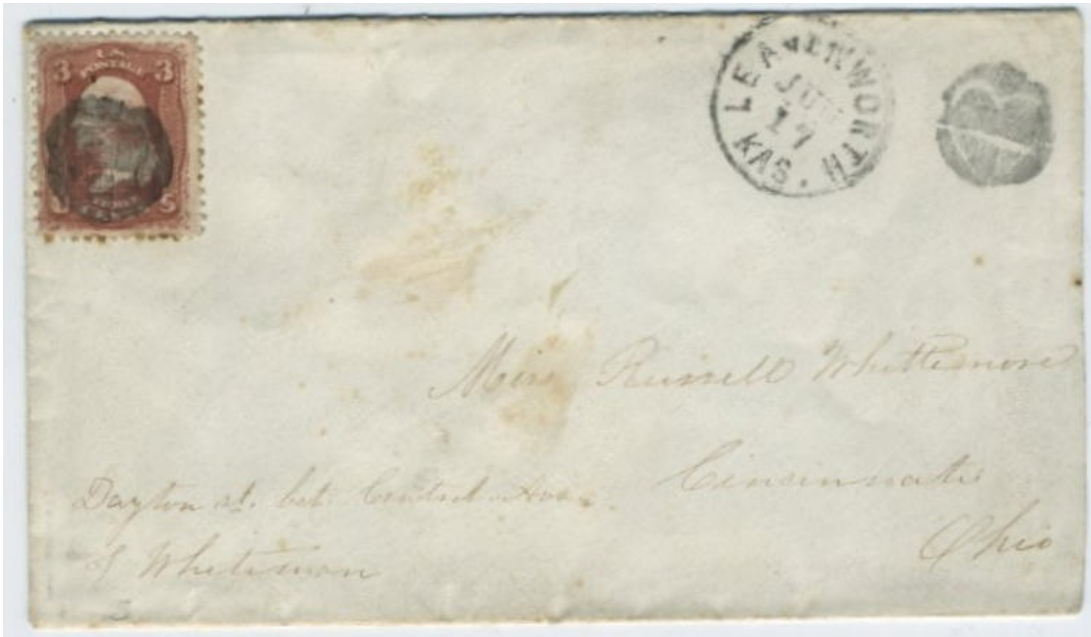 3 3
U.S.
POSTAGE
LEAVENWORTH
17
KAS.
Miss Russell Whittemore
Cincinnati
Ohio
Dayton st. bet. Central Ave.
& Whiteman